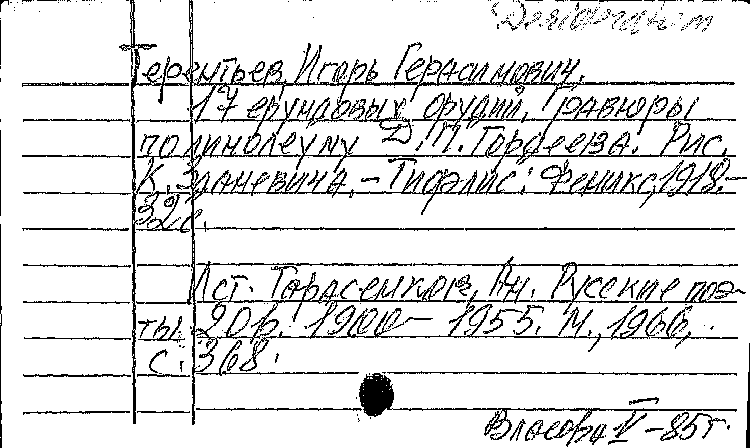 Desideratum
Терентьев, Игорь Герасимович.
17 ерундовых орудий. Гравюры
по линолеуму Д.П. Гордеева. Рис.
К. Зданевича. – Тифлис: Феникс, 1918. –
32 с.
Ист. Тарасенков, Ан. Русские поэ-
ты 20 в. 1900 – 1955. М., 1966,
с. 368.
Власова V – 85 г.